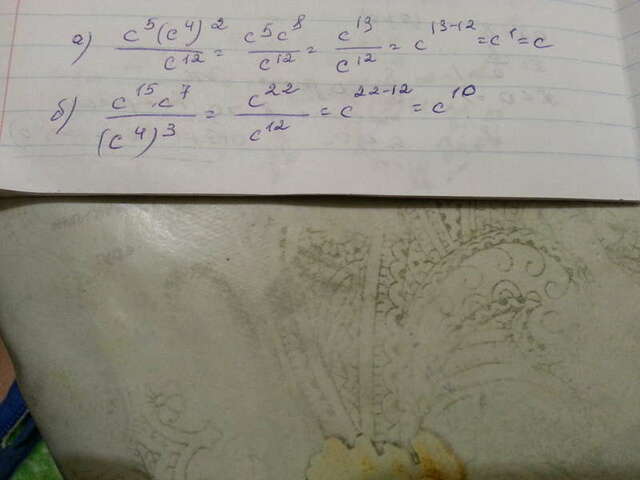 а) c⁵(c⁴)²/c¹² = c⁵c⁸/c¹² = c¹³/c¹² = c¹³⁻¹² = c¹ = c
б) c¹⁵·c⁷/(c⁴)³ = c²²/c¹² = c²²⁻¹² = c¹⁰